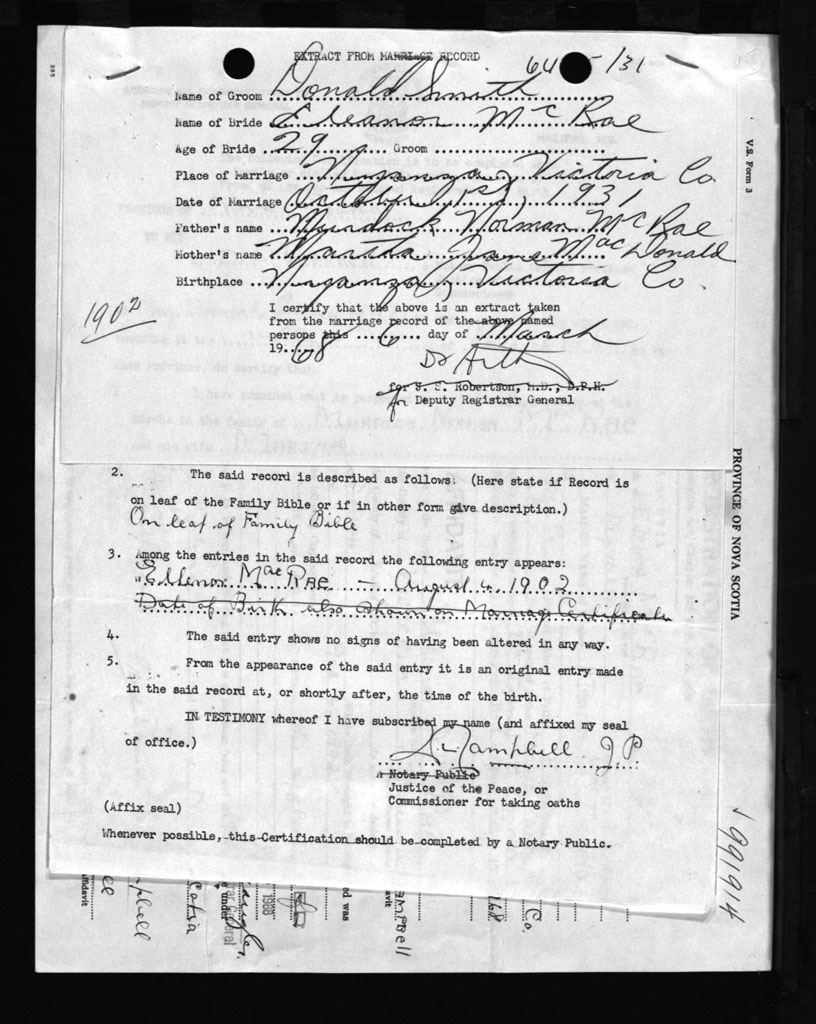 EXTRACT FROM MARRIAGE RECORD
/31
Name of Groom Donald Smith
Name of Bride Eleanor McRae
Age of Bride 29 Groom
Place of Marriage Nyanza, Victoria Co
Date of Marriage October 1st, 1931
Father's name Murdock Norman McRae
Mother's name Martha Jane MacDonald
Birthplace Nyanza, Victoria Co.
1902
I certify that the above is an extract taken
from the marriage record of the above named
persons this 6 day of March
19 68
for S. S. Robertson, M.D., D.P.H.
for Deputy Registrar General
2. The said record is described as follows: (Here state if Record is
on leaf of the Family Bible or if in other form give description.)
On leaf of Family Bible
3. Among the entries in the said record the following entry appears:
"Ellenor MacRae - August 4, 1902
Date of Birth also shown on Marriage Certificate
4. The said entry shows no signs of having been altered in any way.
5. From the appearance of the said entry it is an original entry made
in the said record at, or shortly after, the time of the birth.
IN TESTIMONY whereof I have subscribed my name (and affixed my seal
of office.)
Campbell JP
A Notary Public
Justice of the Peace, or
Commissioner for taking oaths
(Affix seal)
Whenever possible, this Certification should be completed by a Notary Public.
V.S. Form 3
PROVINCE OF NOVA SCOTIA
991914